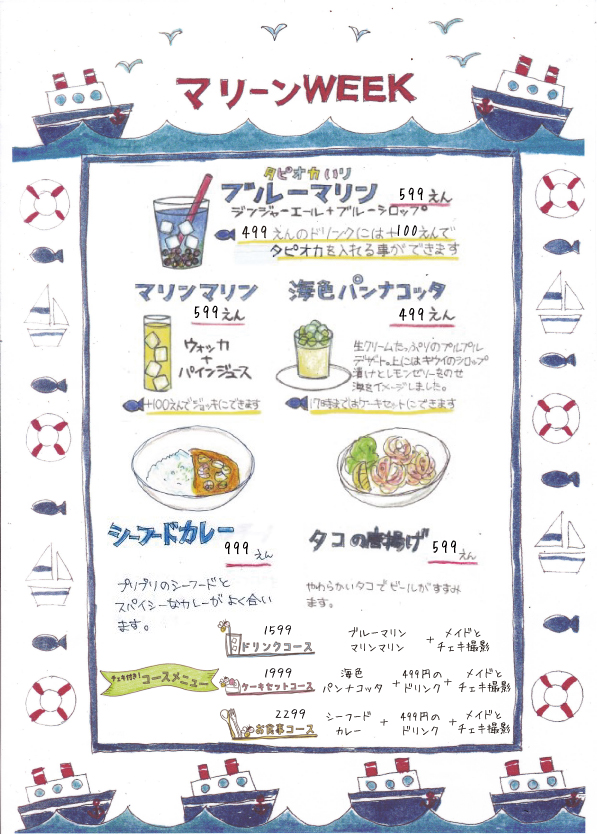 マリーンWEEK
タピオカいり
ブルーマリン 599えん
ジンジャーエール+ブルーシロップ
499えんのドリンクには+100えんで
タピオカを入れる事ができます
マリンマリン
599えん
ウォッカ
+
パインジュース
+100えんでジョッキにできます
海色パンナコッタ
499えん
生クリームたっぷりのプルプル
デザート。上にはキウイのシロップ
漬けとレモンゼリーをのせ
海をイメージしました。
17時まではケーキセットにできます
シーフードカレー
999えん
プリプリのシーフードと
スパイシーなカレーがよく合い
ます。
タコの唐揚げ 599えん
やわらかいタコでビールがすすみ
ます。
チェキ付き!コースメニュー
1599
ドリンクコース
ブルーマリン
マリンマリン
+
メイドと
チェキ撮影
1999
ケーキセットコース
海色
パンナコッタ
+
499円の
ドリンク
+
メイドと
チェキ撮影
2299
お食事コース
シーフード
カレー
+
499円の
ドリンク
+
メイドと
チェキ撮影